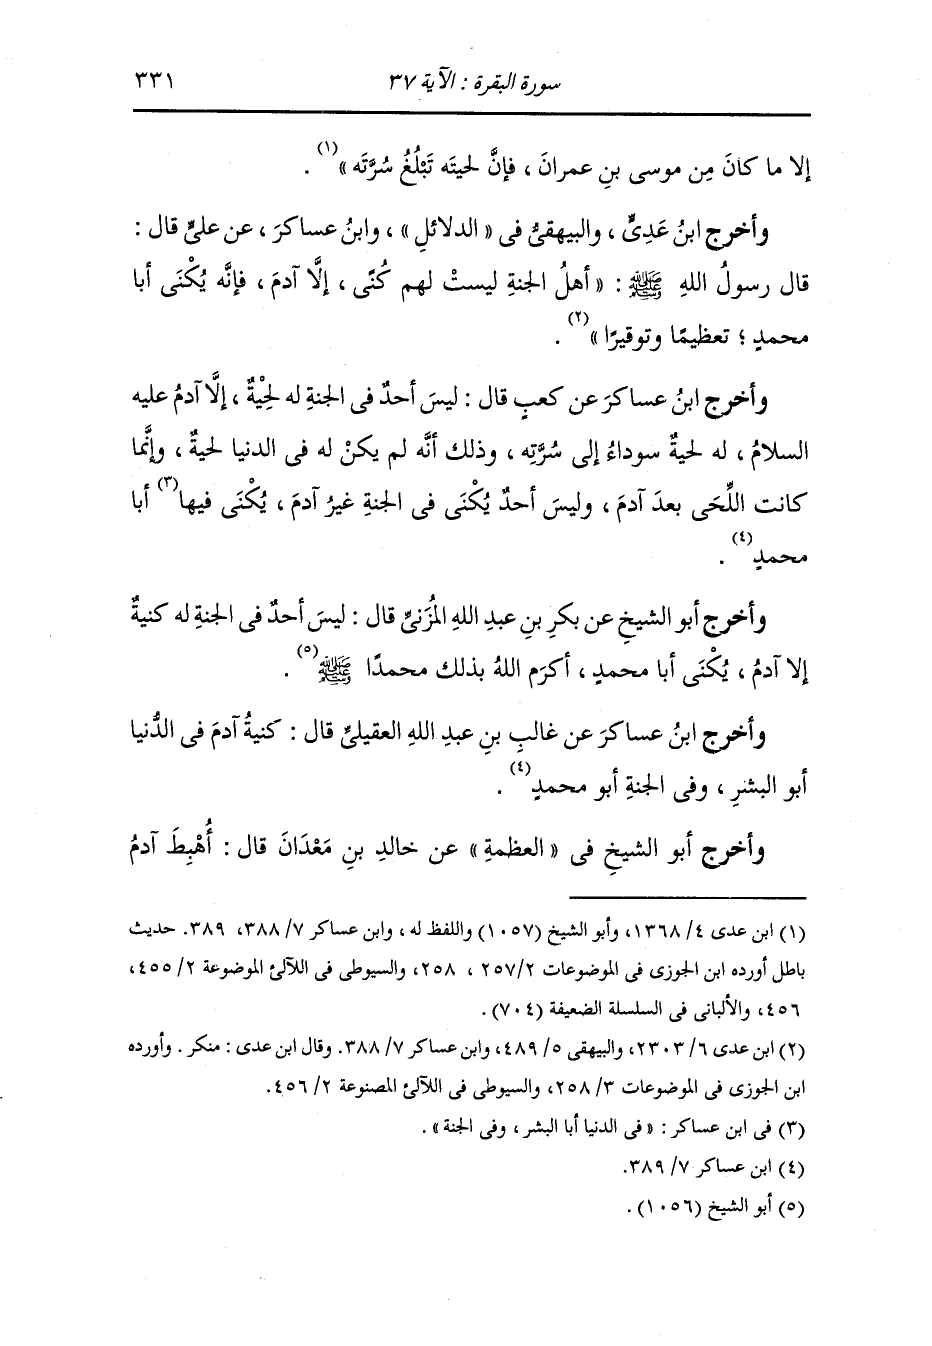 سورة البقرة : الآية ٣٧ ٣٣١
إلا ما كانَ مِن موسى بنِ عمرانَ ، فإنَّ لحيتَه تَبْلُغُ سُرَّتَه »(١) .
وأخرج ابنُ عَدِىٍّ ، والبيهقىُّ فى « الدلائلِ » ، وابنُ عساكرَ ، عن علىٍّ قال :
قال رسولُ اللهِ ﷺ : « أهلُ الجنةِ ليستْ لهم كُنًى ، إلَّا آدمَ ، فإنَّه يُكْنَى أبا
محمدٍ ؛ تعظيمًا وتوقيرًا »(٢) .
وأخرج ابنُ عساكرَ عن كعبٍ قال : ليسَ أحدٌ فى الجنةِ له لِحْيةٌ ، إلَّا آدمُ عليه
السلامُ ، له لحيةٌ سوداءُ إلى سُرَّتِه ، وذلك أنَّه لم يكنْ له فى الدنيا لحيةٌ ، وإنَّما
كانت اللِّحَى بعدَ آدمَ ، وليسَ أحدٌ يُكْنَى فى الجنةِ غيرُ آدمَ ، يُكْنَى فيها(٣) أبا
محمدٍ(٤) .
وأخرج أبو الشيخِ عن بكرِ بنِ عبدِ اللهِ المُزَنىِّ قال : ليسَ أحدٌ فى الجنةِ له كنيةٌ
إلا آدمُ ، يُكْنَى أبا محمدٍ ، أكرَم اللهُ بذلك محمدًا ﷺ(٥) .
وأخرج ابنُ عساكرَ عن غالبِ بنِ عبدِ اللهِ العقيلىِّ قال : كنيةُ آدمَ فى الدُّنيا
أبو البشرِ ، وفى الجنةِ أبو محمدٍ(٤) .
وأخرج أبو الشيخِ فى « العظمةِ » عن خالدِ بنِ مَعْدَانَ قال : أُهْبِطَ آدمُ
(١) ابن عدى ٤/ ١٣٦٨، وأبو الشيخ (١٠٥٧) واللفظ له ، وابن عساكر ٧/ ٣٨٨، ٣٨٩. حديث
باطل أورده ابن الجوزى فى الموضوعات ٢/ ٢٥٧ ، ٢٥٨، والسيوطى فى اللآلئ الموضوعة ٢/ ٤٥٥،
٤٥٦، والألبانى فى السلسلة الضعيفة (٧٠٤) .
(٢) ابن عدى ٦/ ٢٣٠٣، والبيهقى ٥/ ٤٨٩، وابن عساكر ٧/ ٣٨٨. وقال ابن عدى : منكر . وأورده
ابن الجوزى فى الموضوعات ٣/ ٢٥٨، والسيوطى فى اللآلئ المصنوعة ٢/ ٤٥٦.
(٣) فى ابن عساكر : « فى الدنيا أبا البشر ، وفى الجنة » .
(٤) ابن عساكر ٧/ ٣٨٩.
(٥) أبو الشيخ (١٠٥٦) .